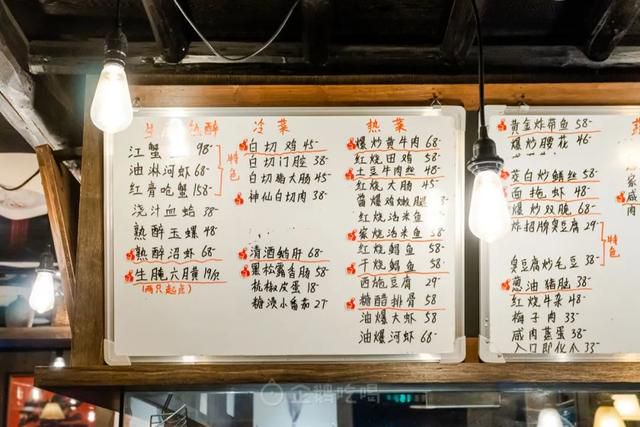 熟醉
江蟹 98-
油淋河虾 68-
红膏呛蟹 158-
特色
浇汁血蛤 38-
熟醉玉螺 48-
熟醉沼虾 68-
生腌六月黄 19/只
(两只起点)
冷菜
白切鸡 45-
白切门腔 38-
白切猪大肠 45-
神仙白切肉 38-
清酒鹅肝 68-
黑松露香肠 58-
杭椒皮蛋 18-
糖渍小番茄 27-
热菜
爆炒黄牛肉 68-
红烧田鸡 58-
土豆牛肉丝 48-
红烧大肠 45-
酱爆鸡嫩
红烧汤米鱼
家烧汤米鱼 58-
红烧鲳鱼 58-
干烧鲳鱼 58-
西施豆腐 29-
糖醋排骨 58-
油爆大虾 58-
油爆河虾 68-
黄金炸带鱼 58-
爆炒腰花 46-
茭白炒鳝丝 58-
面拖虾 48-
爆炒双脆 68-
炸招牌臭豆腐 29-
臭豆腐炒毛豆 38-
特色
葱油猪肚
红烧牛杂 48-
梅子肉 33-
咸肉蒸蛋 38-
入口即化 33-
咸
肉
企鹅吃喝